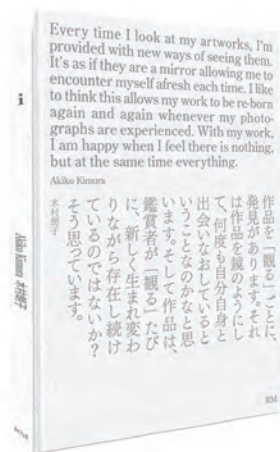 Every time I look at my artworks, I'm
provided with new ways of seeing them.
It's as if they are a mirror allowing me to
encounter myself afresh each time. I like
to think this allows my work to be re-born
again and again whenever my photo-
graphs are experienced. With my work,
I am happy when I feel there is nothing,
but at the same time everything.
Akiko Kimura
作品を「観る」ごとに、
発見があります。それ
は作品を鏡のようにし
て、何度も自分自身と
出会いなおしていると
いうことなのかなと思
います。そして作品は、
鑑賞者が「観る」たび
に、新しく生まれ変わ
りながら存在し続け
ているのではないか？
そう思っています。
木村朗子
RM
i
Akiko Kimura 木村朗子